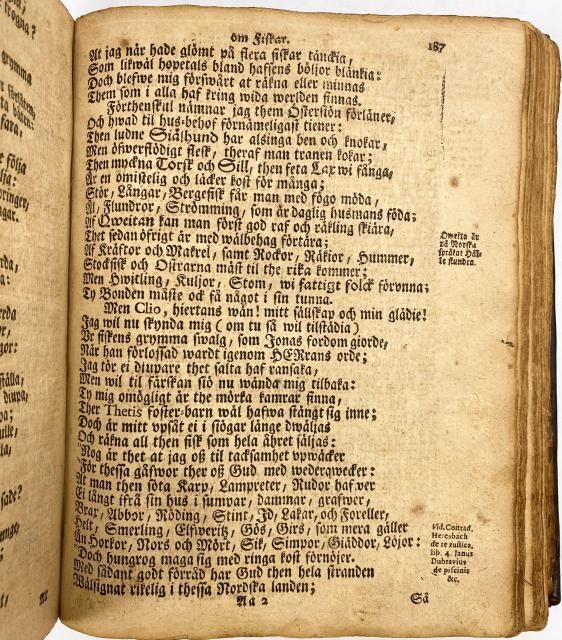 om Fiskar.
187
At jag när hade glömt på flera fiskar tänckia,
Som likwäl hopetals bland hafsens böljor blänkia:
Doch blefwe mig förswårt at räkna eller minnas
Them som i alla haf kring wida werlden finnas.
Förthenskul nämnar jag them Ostersiön förläner,
Och hwad til hus-behof förnämeligast tiener:
Then ludne Siälhund har alsinga ben och knokar,
Men öfwerflödigt flesk, theraf man tranen kokar;
Then myckna Torsk och Sill, then feta Lax wi fånga,
Är en omistelig och läcker kost för många;
Stör, Långar, Bergefisk får man med fögo möda,
Ål, Flundror, Strömming, som är daglig husmans föda;
Af Qweitan kan man först god raf och räkling skiära,
Thet sedan öfrigt är med wälbehag förtära;
Af Kräftor och Makrel, samt Rockor, Räkior, Hummer,
Stockfisk och Ostrarna mäst til the rika kommer;
Men Hwitling, Kuljor, Stom, wi fattigt folck förunna;
Ty Bonden måste ock få något i sin tunna.
Men Clio, hiertans wän! mitt sällskap och min glädie!
Jag wil nu skynda mig (om tu så wil tilstädia)
Ur fiskens grymma swalg, som Jonas fordom giorde,
När han förlossad wardt igenom HERrans orde;
Jag tör ei diupare thet salta haf ransaka,
Men wil til färskan siö nu wända mig tilbaka:
Ty mig omögligt är the mörka kamrar finna,
Ther Thetis foster-barn wäl hafwa stängt sig inne;
Doch är mitt upsåt ei i siögar länge dwäljas
Och räkna all then fisk som hela åhret säljas:
Nog är thet at jag oß til tacksamhet upwäcker
För thessa gåfwor ther oß Gud med wederqwecker:
At man then söta Karp, Lampreter, Rudor hafwer
Ei långt ifrå sin hus i sumpar, dammar, grafwer,
Brax, Abbor, Röding, Stint, Id, Lakar, och Foreller,
Helt, Smerling, Elfweritz, Gös, Girs, som mera gäller
Än Horkor, Nors och Mört, Sik, Simpor, Giäddor, Löjor:
Doch hungrog maga sig med ringa kost förnöjer.
Med sådant godt förråd har Gud then hela stranden
Wälsignat rikelig i thessa Nordska landen;
Aa 2
Så
Qweita är
på Norska
språket Häl-
le flundra.
Vid. Conrad.
Heresbach
de re rustica,
lib. 4. Janus
Dubravius
de piscinis
&c.